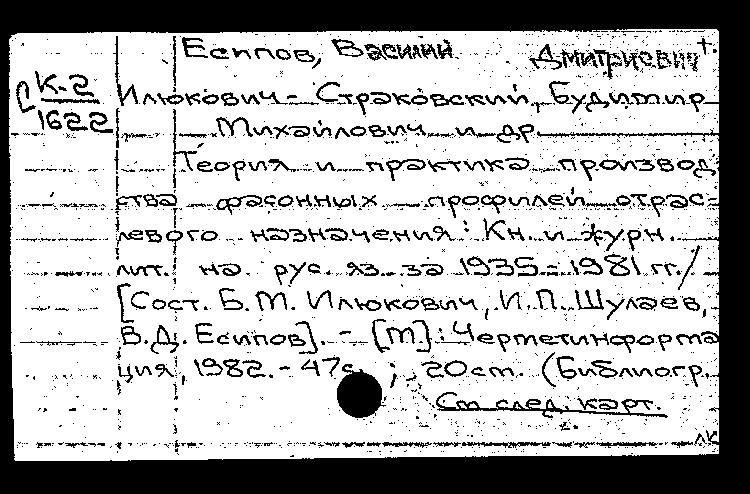 Есипов, Василий Дмитриевич †.
К-2
1622
Илюкович-Страковский, Будимир
Михайлович и др.
Теория и практика производ-
ства фасонных профилей отрас-
левого назначения: Кн. и журн.
лит. на рус. яз. за 1935-1981 гг./
[Сост. Б.М. Илюкович, И.П. Шулаев,
В.Д. Есипов]. - [М]: Черметинформа
ция, 1982. - 47с. ; 20см. (Библиогр.
См след. карт.
лк